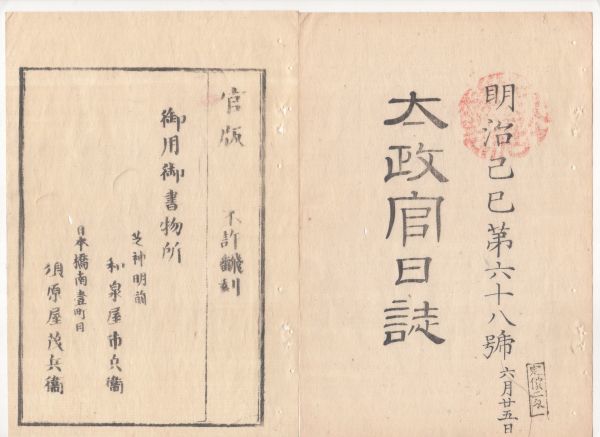 明治己巳第六十八號 六月廿五日
太政官日誌
官版 不許翻刻
御用御書物所
芝神明前
和泉屋市兵衞
日本橋南壹町目
須原屋茂兵衞